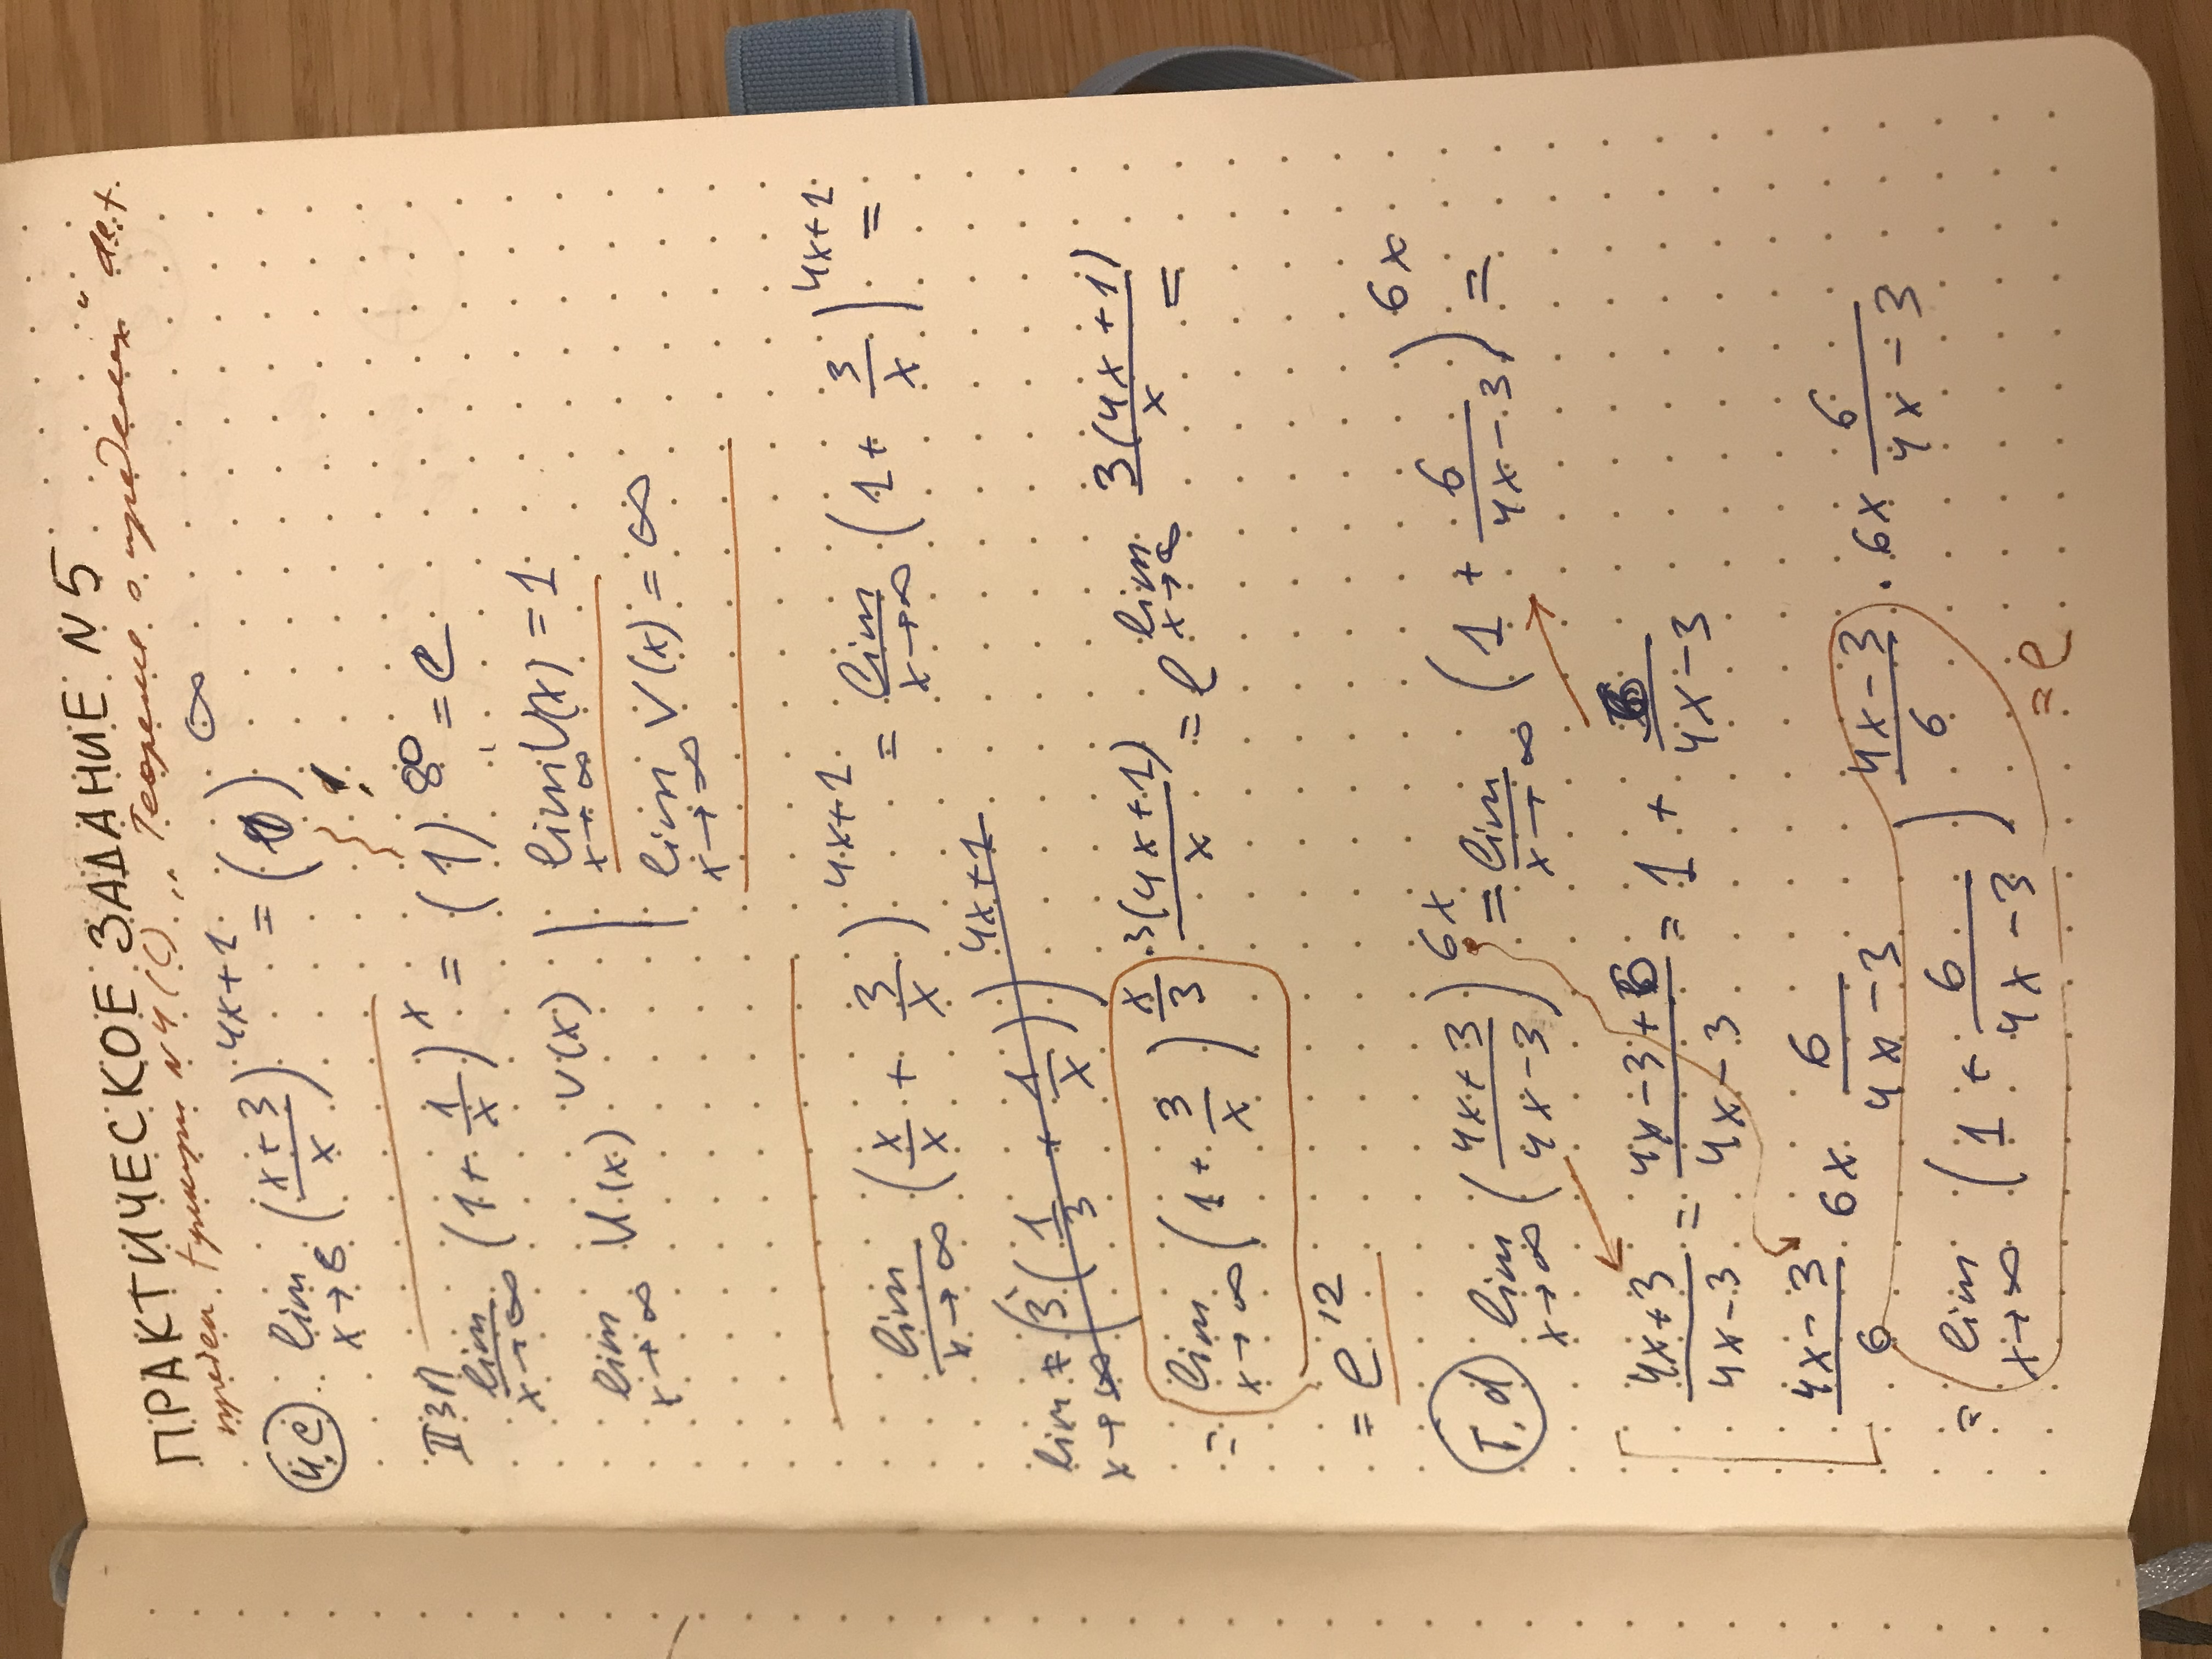 ПРАКТИЧЕСКОЕ ЗАДАНИЕ N 5
предел функции N4 (C) „Теорема о пределах“ de.f.
4,c lim x→8 ((x+3)/x)^(4x+1) = (1)^∞
!
II ЗП
lim x→∞ (1 + 1/x)^x = (1)^∞ = e
lim x→∞ U(x)^V(x) | lim x→∞ U(x) = 1
lim x→∞ V(x) = ∞
lim x→∞ (x/x + 3/x)^(4x+1) = lim x→∞ (1 + 3/x)^(4x+1) =
lim x→∞ (3(1/3 + 1/x))^(4x+1)
= lim x→∞ (1 + 3/x)^(x/3 · 3(4x+1)/x) = e^(lim x→∞ 3(4x+1)/x) =
= e^12
T,d lim x→∞ ((4x+3)/(4x-3))^(6x) = lim x→∞ (1 + 6/(4x-3))^(6x) =
(4x+3)/(4x-3) = (4x-3+6)/(4x-3) = 1 + 6/(4x-3)
(4x-3)/6 · 6x · 6/(4x-3)
= lim x→∞ (1 + 6/(4x-3))^((4x-3)/6 · 6x · 6/(4x-3))
= e